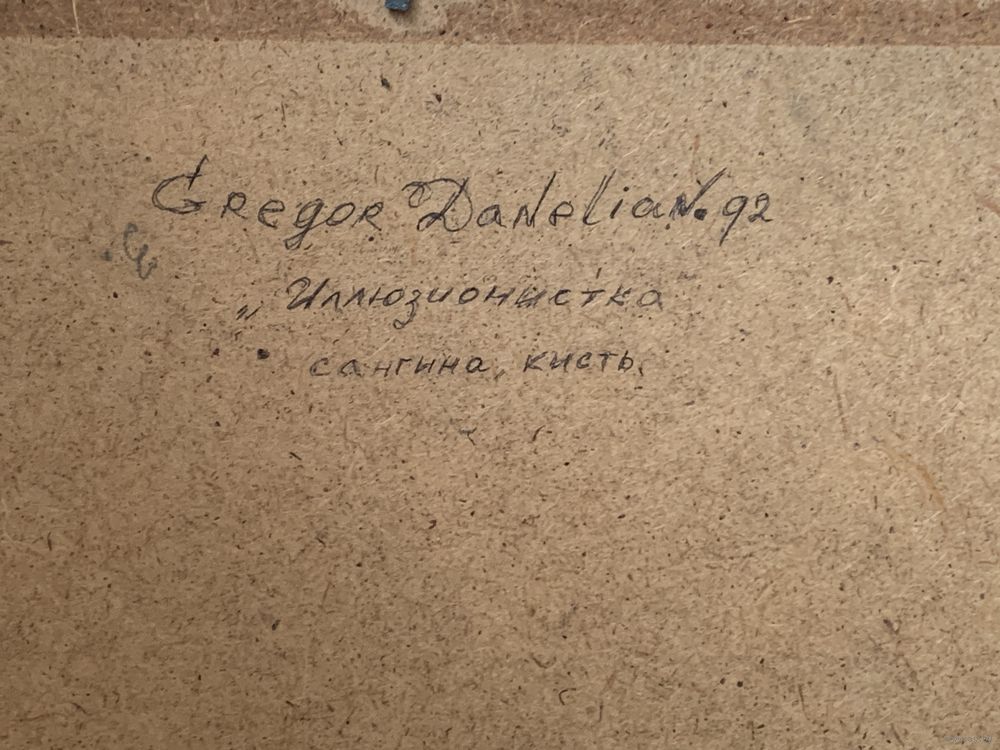 Gregor Danelian. 92
„Иллюзионистка
сангина, кисть.